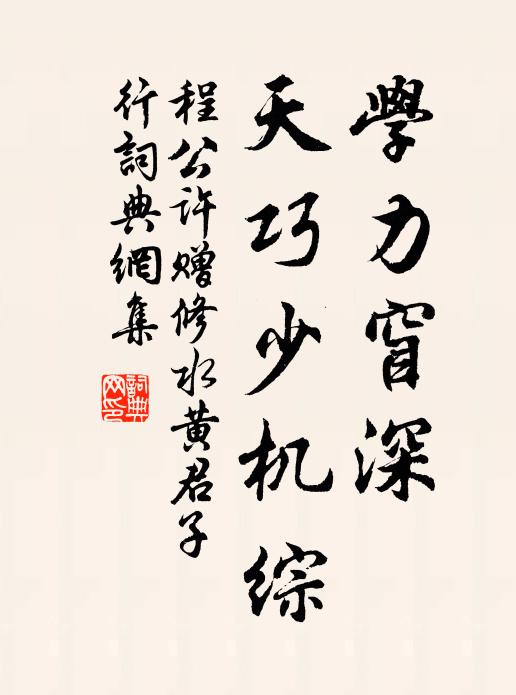 學力窅深
天巧少机綜
程公許赠修水黄君子
行詞典網集
詞典網印